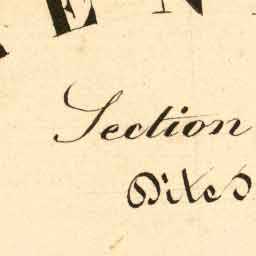 EN
Section
Dite